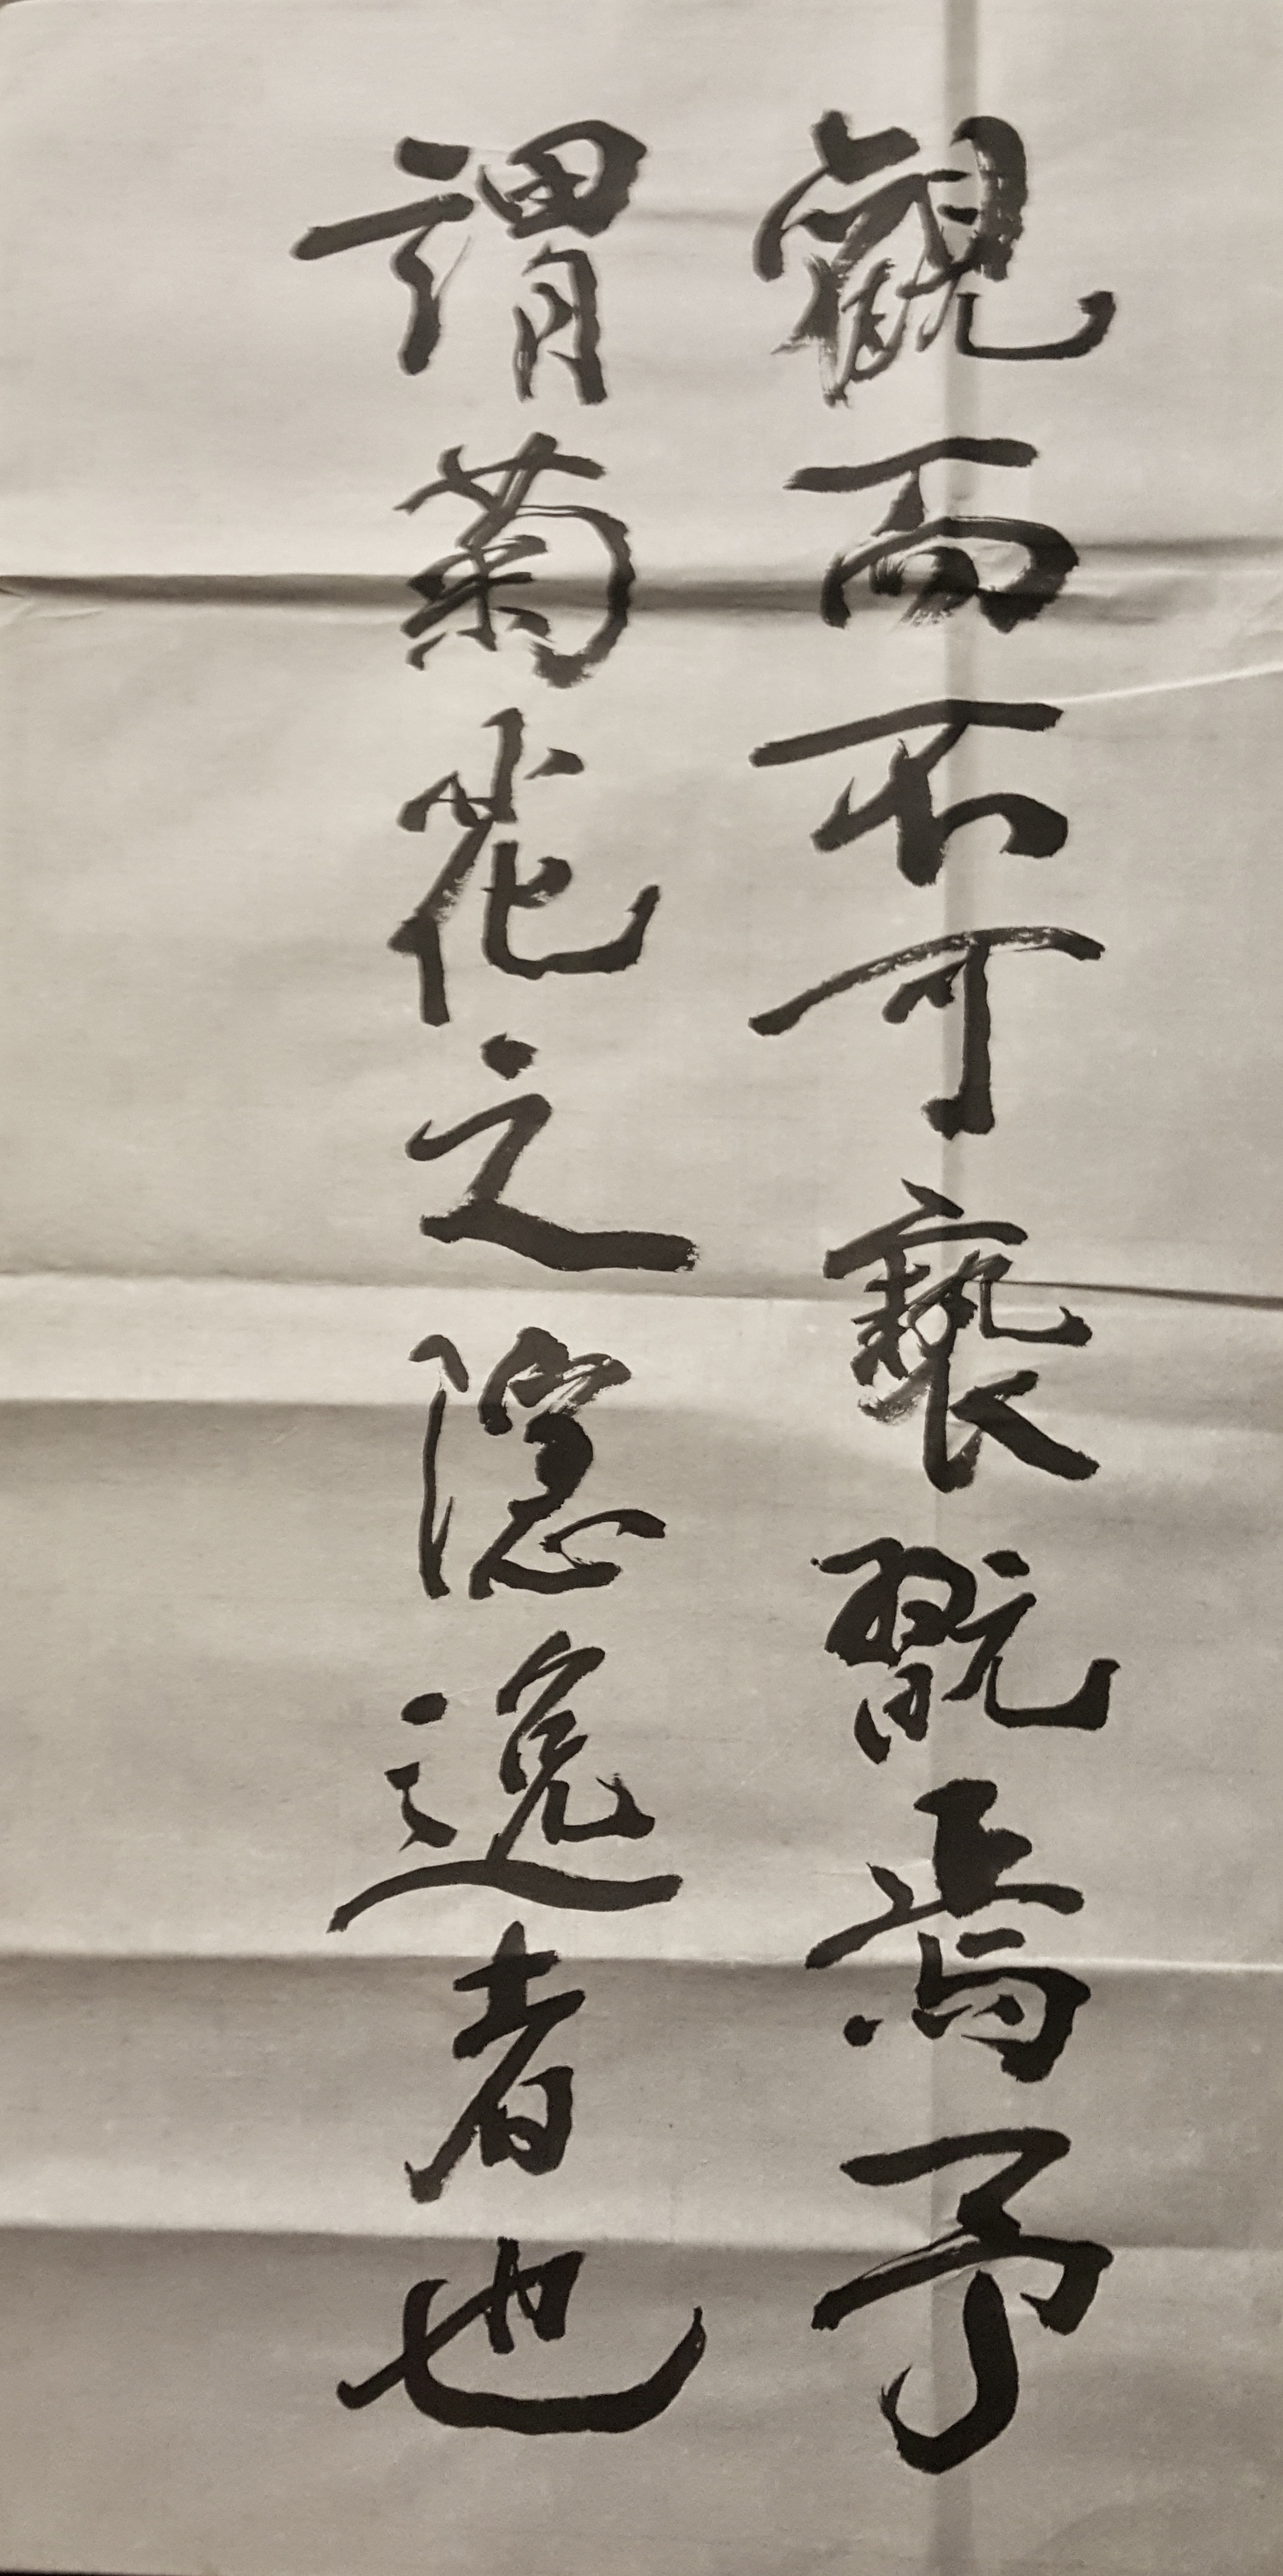 觀而不可褻翫焉予
謂菊花之隱逸者也